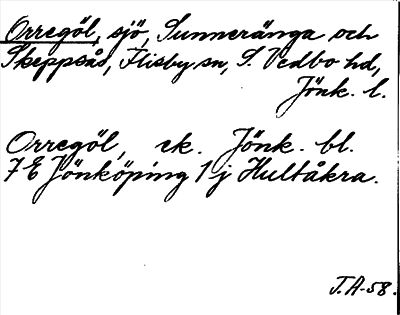 Orregöl, sjö, Sunneränga och
Skeppsås, Flisby sn, S. Vedbo hd,
Jönk. l.
Orregöl, ek. Jönk. bl.
7 E Jönköping 1 j Hultåkra.
J.A-58.